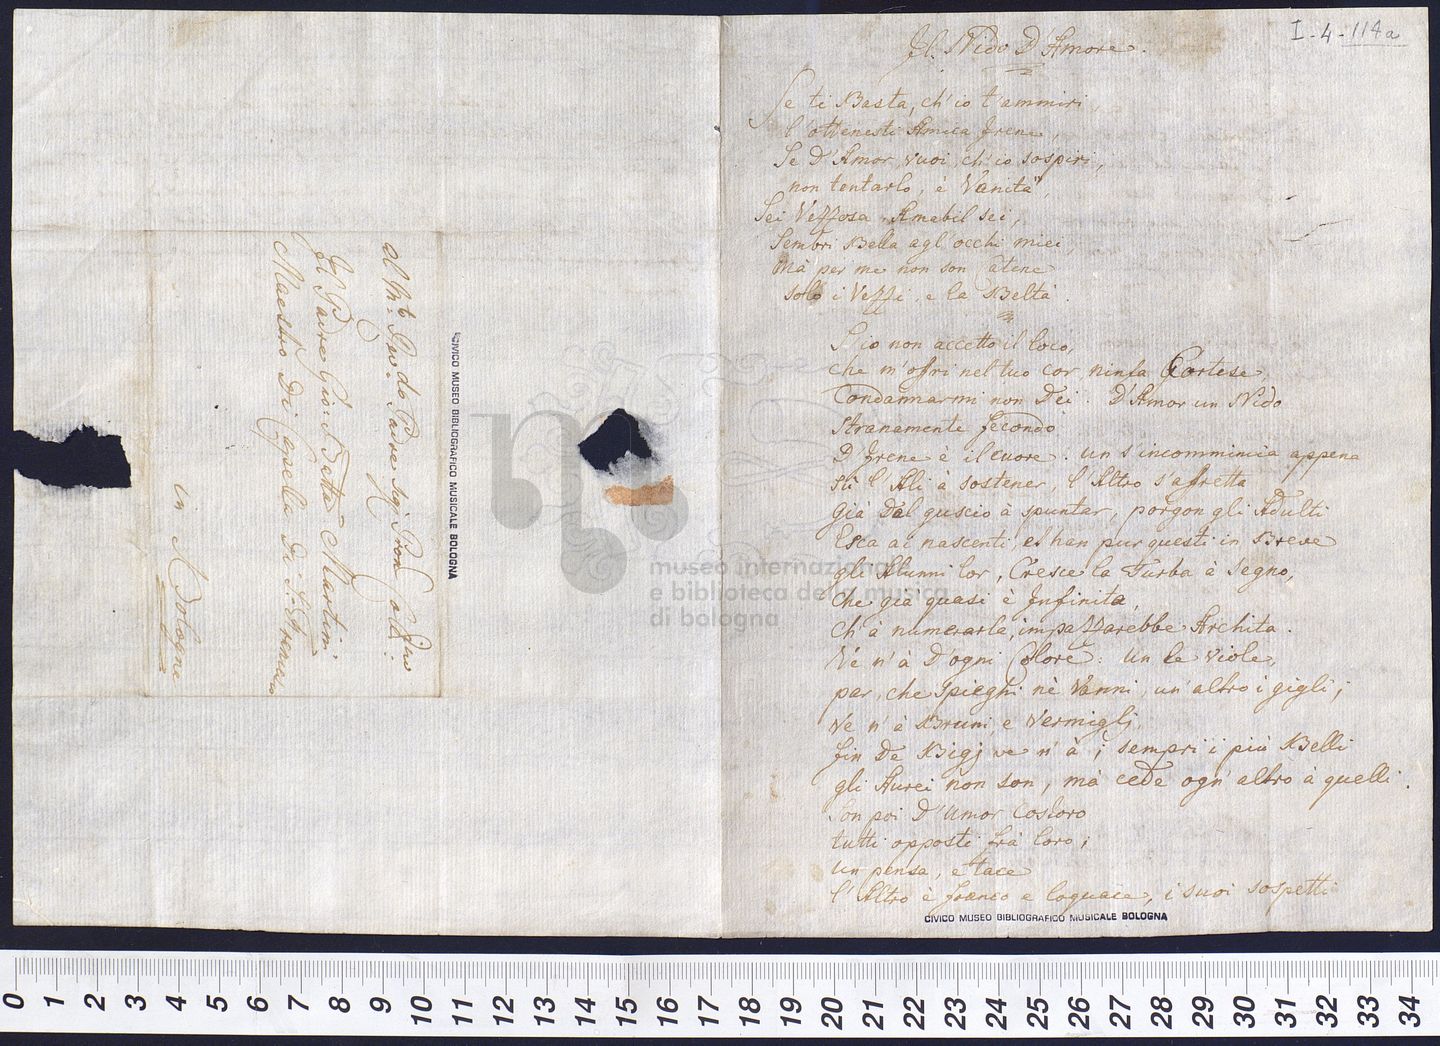 al M.to Rev.do Padre Sig. Pron Col.mo
Il Padre Gio: Batta Martini
Maestro Di Capella Di S. Francesco
in Bologna
CIVICO MUSEO BIBLIOGRAFICO MUSICALE BOLOGNA
I-4-114a
Il Nido D'Amore.
Se ti Basta, ch'io t'ammiri
l'ottenesti Amica Irene,
Se D'Amor vuoi, ch'io sospiri,
non tentarlo, è Vanità,
Sei Vezzosa Amabil sei,
Sembri Bella agl'occhi miei,
Mà per me non son Catene
solo i Vezzi, e la Beltà.
S'io non accetto il loco,
che m'offri nel tuo cor, ninfa Cortese,
Condannarmi non Dei. D'Amor un Nido
Stranamente fecondo
D'Irene è il cuore. un s'incomincia appena
Sù l'Ali à sostener, l'Altro s'affretta
già Dal guscio à spuntar, porgon gli Adulti
Esca ai nascenti, et han pur questi in Breve
gli Alunni lor, Cresce la Turba à Segno,
che già quasi è Infinita,
ch'à numerarla, impazzarebbe Archita.
Ve n'à D'ogni Colore: un le viole,
par, che spieghi nè Vanni, un'altro i gigli;
Ve n'à Bruni, e Vermigli,
fin De Bigj ve n'à; sempri i più Belli
gli Aurei non son, mà cede ogn'altro à quelli.
Son poi D'umor Costoro
tutti opposti frà loro;
un pensa, e tace
l'Altro è franco e loquace, i suoi sospetti
CIVICO MUSEO BIBLIOGRAFICO MUSICALE BOLOGNA
museo internazionale
e biblioteca della musica
di bologna
0 1 2 3 4 5 6 7 8 9 10 11 12 13 14 15 16 17 18 19 20 21 22 23 24 25 26 27 28 29 30 31 32 33 34